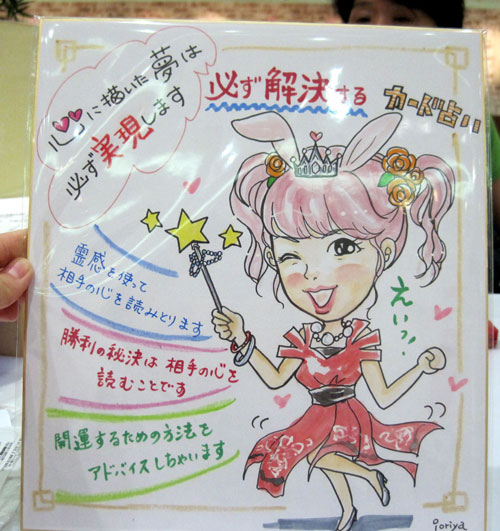 心に描いた夢は
必ず実現します
必ず解決する
カード占い
霊感を使って
相手の心を読みとります
勝利の秘決は相手の心を
読むことです
開運するための方法を
アドバイスしちゃいます
えいっ!
ioriya